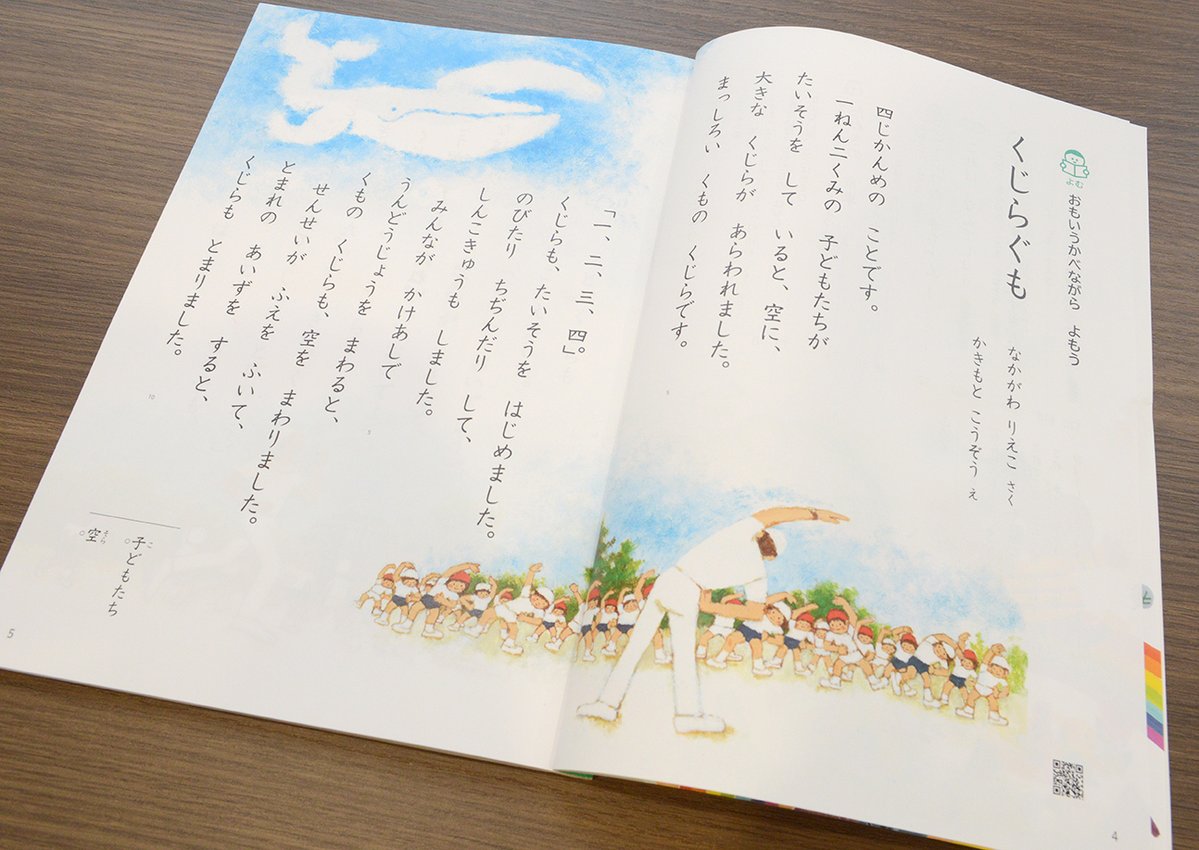 よむ
おもいうかべながら　よもう
くじらぐも
なかがわ りえこ さく
かきもと こうぞう え
四じかんめの　ことです。
一ねん二くみの　子どもたちが
たいそうを　して　いると、空に、
大きな　くじらが　あらわれました。
まっしろい　くもの　くじらです。
5
4
「一、二、三、四。」
くじらも、たいそうを　はじめました。
のびたり　ちぢんだり　して、
しんこきゅうも　しました。
みんなが　かけあしで
うんどうじょうを　まわると、
くもの　くじらも、空を　まわりました。
せんせいが　ふえを　ふいて、
とまれの　あいずを　すると、
くじらも　とまりました。
5
10
子どもたち
こ
空
そら
5